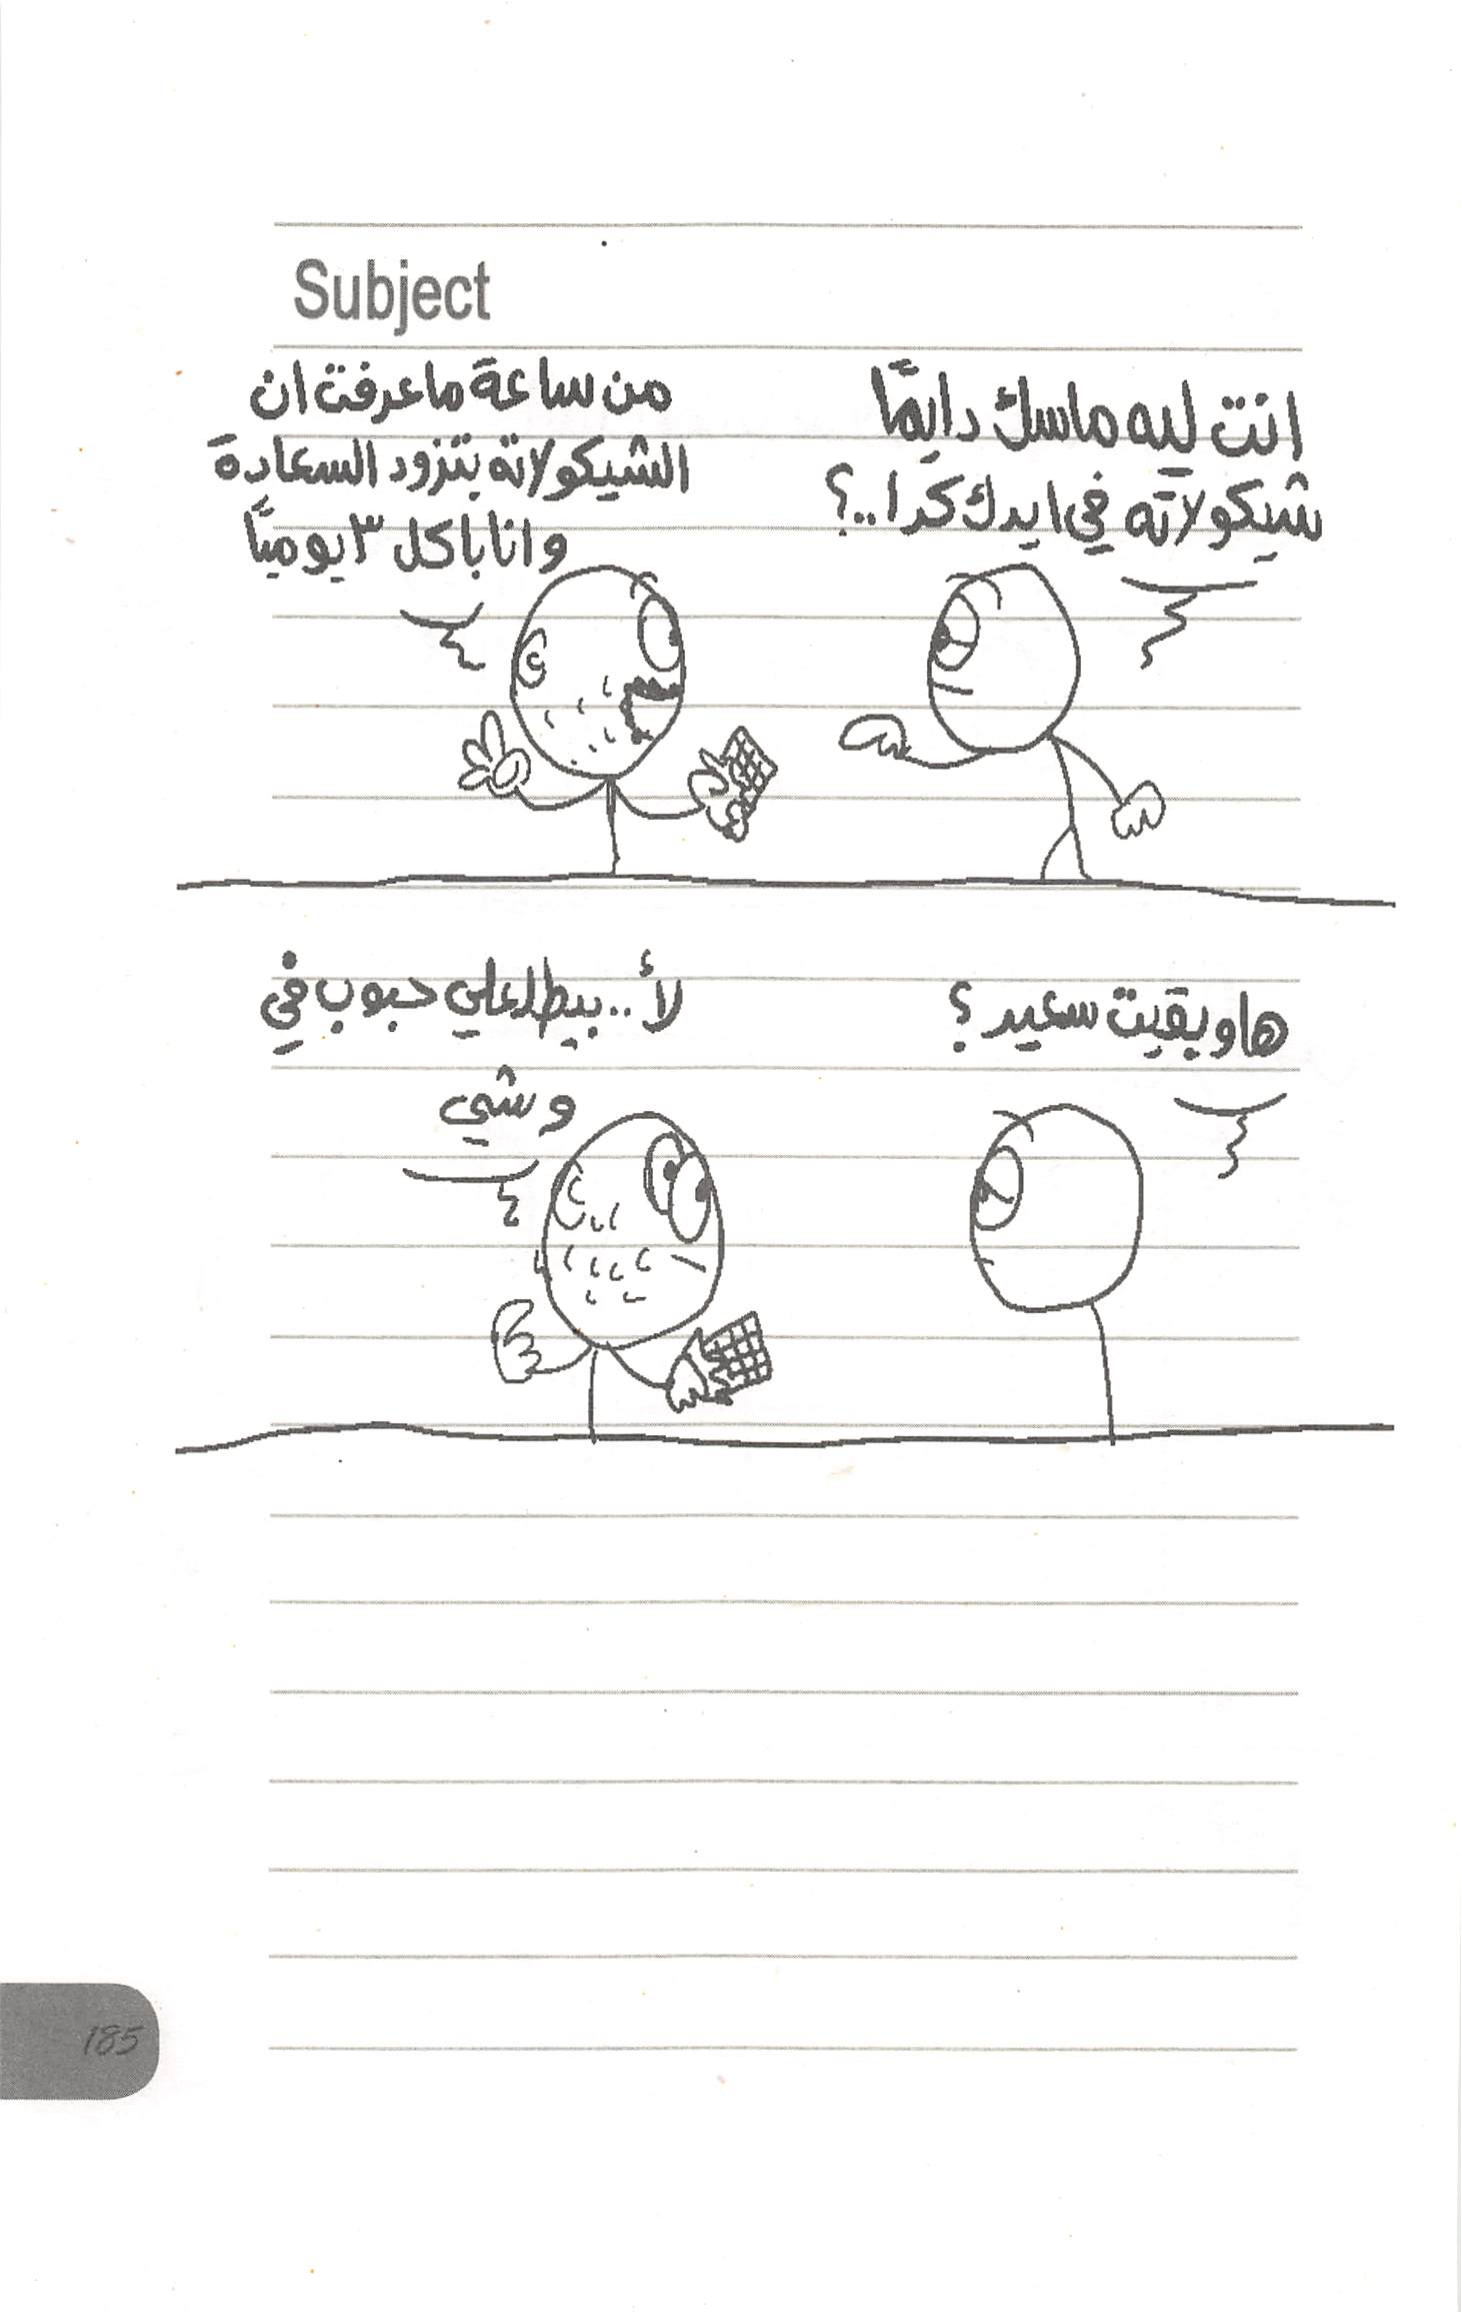 Subject
انت ليه ماسك دايمًا
شيكولاته في ايدك كدا..؟
من ساعة ما عرفت ان
الشيكولاته بتزود السعادة
وانا باكل ٣ يوميًا
ها وبقيت سعيد؟
لأ.. بيطلعلي حبوب في
وشي
185